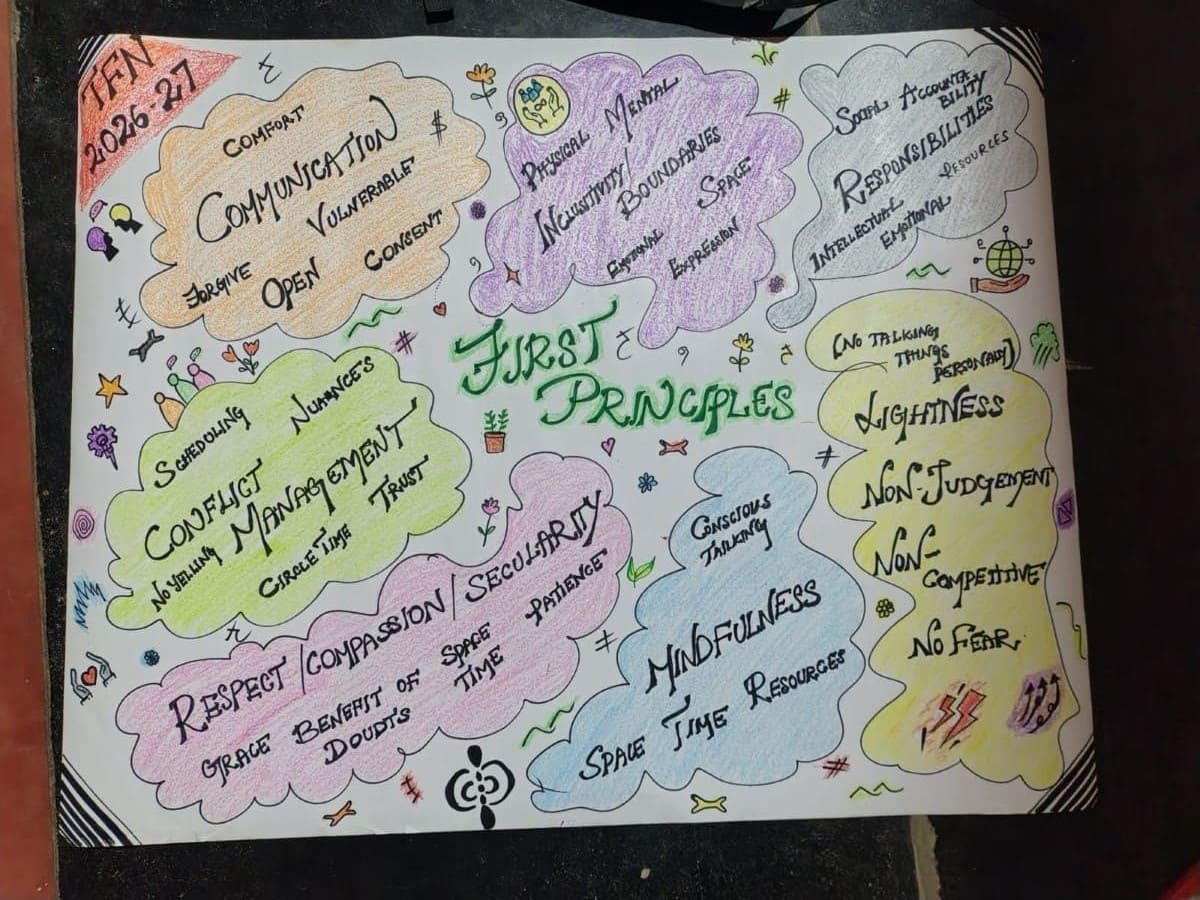 TFN
2026-27
COMFORT
COMMUNICATION
VULNERABLE
FORGIVE OPEN CONSENT
$
PHYSICAL MENTAL
INCLUSITIVITY/ BOUNDARIES
SPACE
EMOTIONAL EXPRESSION
#
SOCIAL ACCOUNTA
BILITY
RESPONSIBILITIES
RESOURCES
INTELLECTUAL
EMOTIONAL
FIRST
PRINCIPLES
#
SCHEDOLING NUANNCE'S
CONFLICT
MANAGEMENT
NO YELLING CIRCLE TIME TRUST
(NO TALKING
THINGS
PERSONALY)
LIGHTNESS
NON-JUDGEMENT
NON-
COMPETITIVE
NO FEAR
#
RESPECT/COMPASSION/SECULARITY
GRACE BENEFIT OF SPACE PATIENCE
DOUDTS TIME
CONSCIOUS
TALKING
MINDFULNESS
SPACE TIME RESOURCES
#